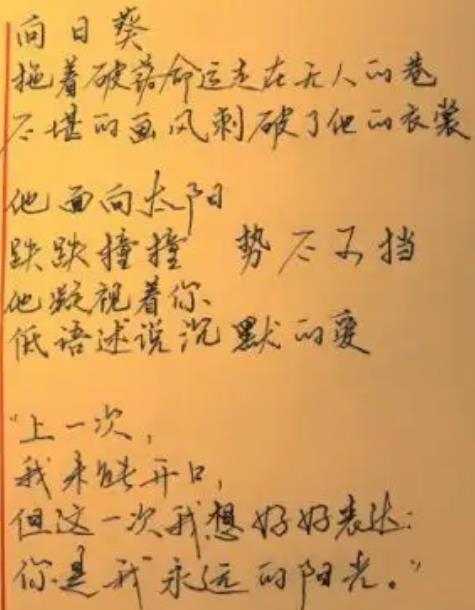 向日葵
拖着破落命运走在无人的巷
不堪的画风刺破了他的衣裳
他面向太阳
跌跌撞撞 势不可挡
他凝视着你
低语述说沉默的爱
“上一次，
我未能开口，
但这一次我想好好表达：
你是我永远的阳光。”